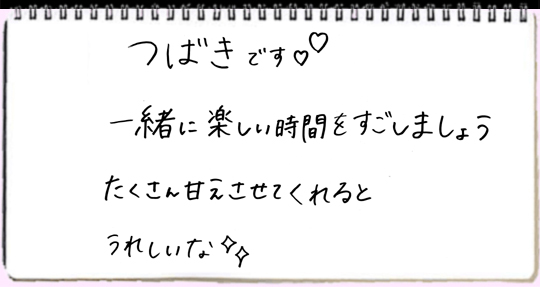 つばきです♡♡
一緒に楽しい時間をすごしましょう
たくさん甘えさせてくれると
うれしいな✧✧